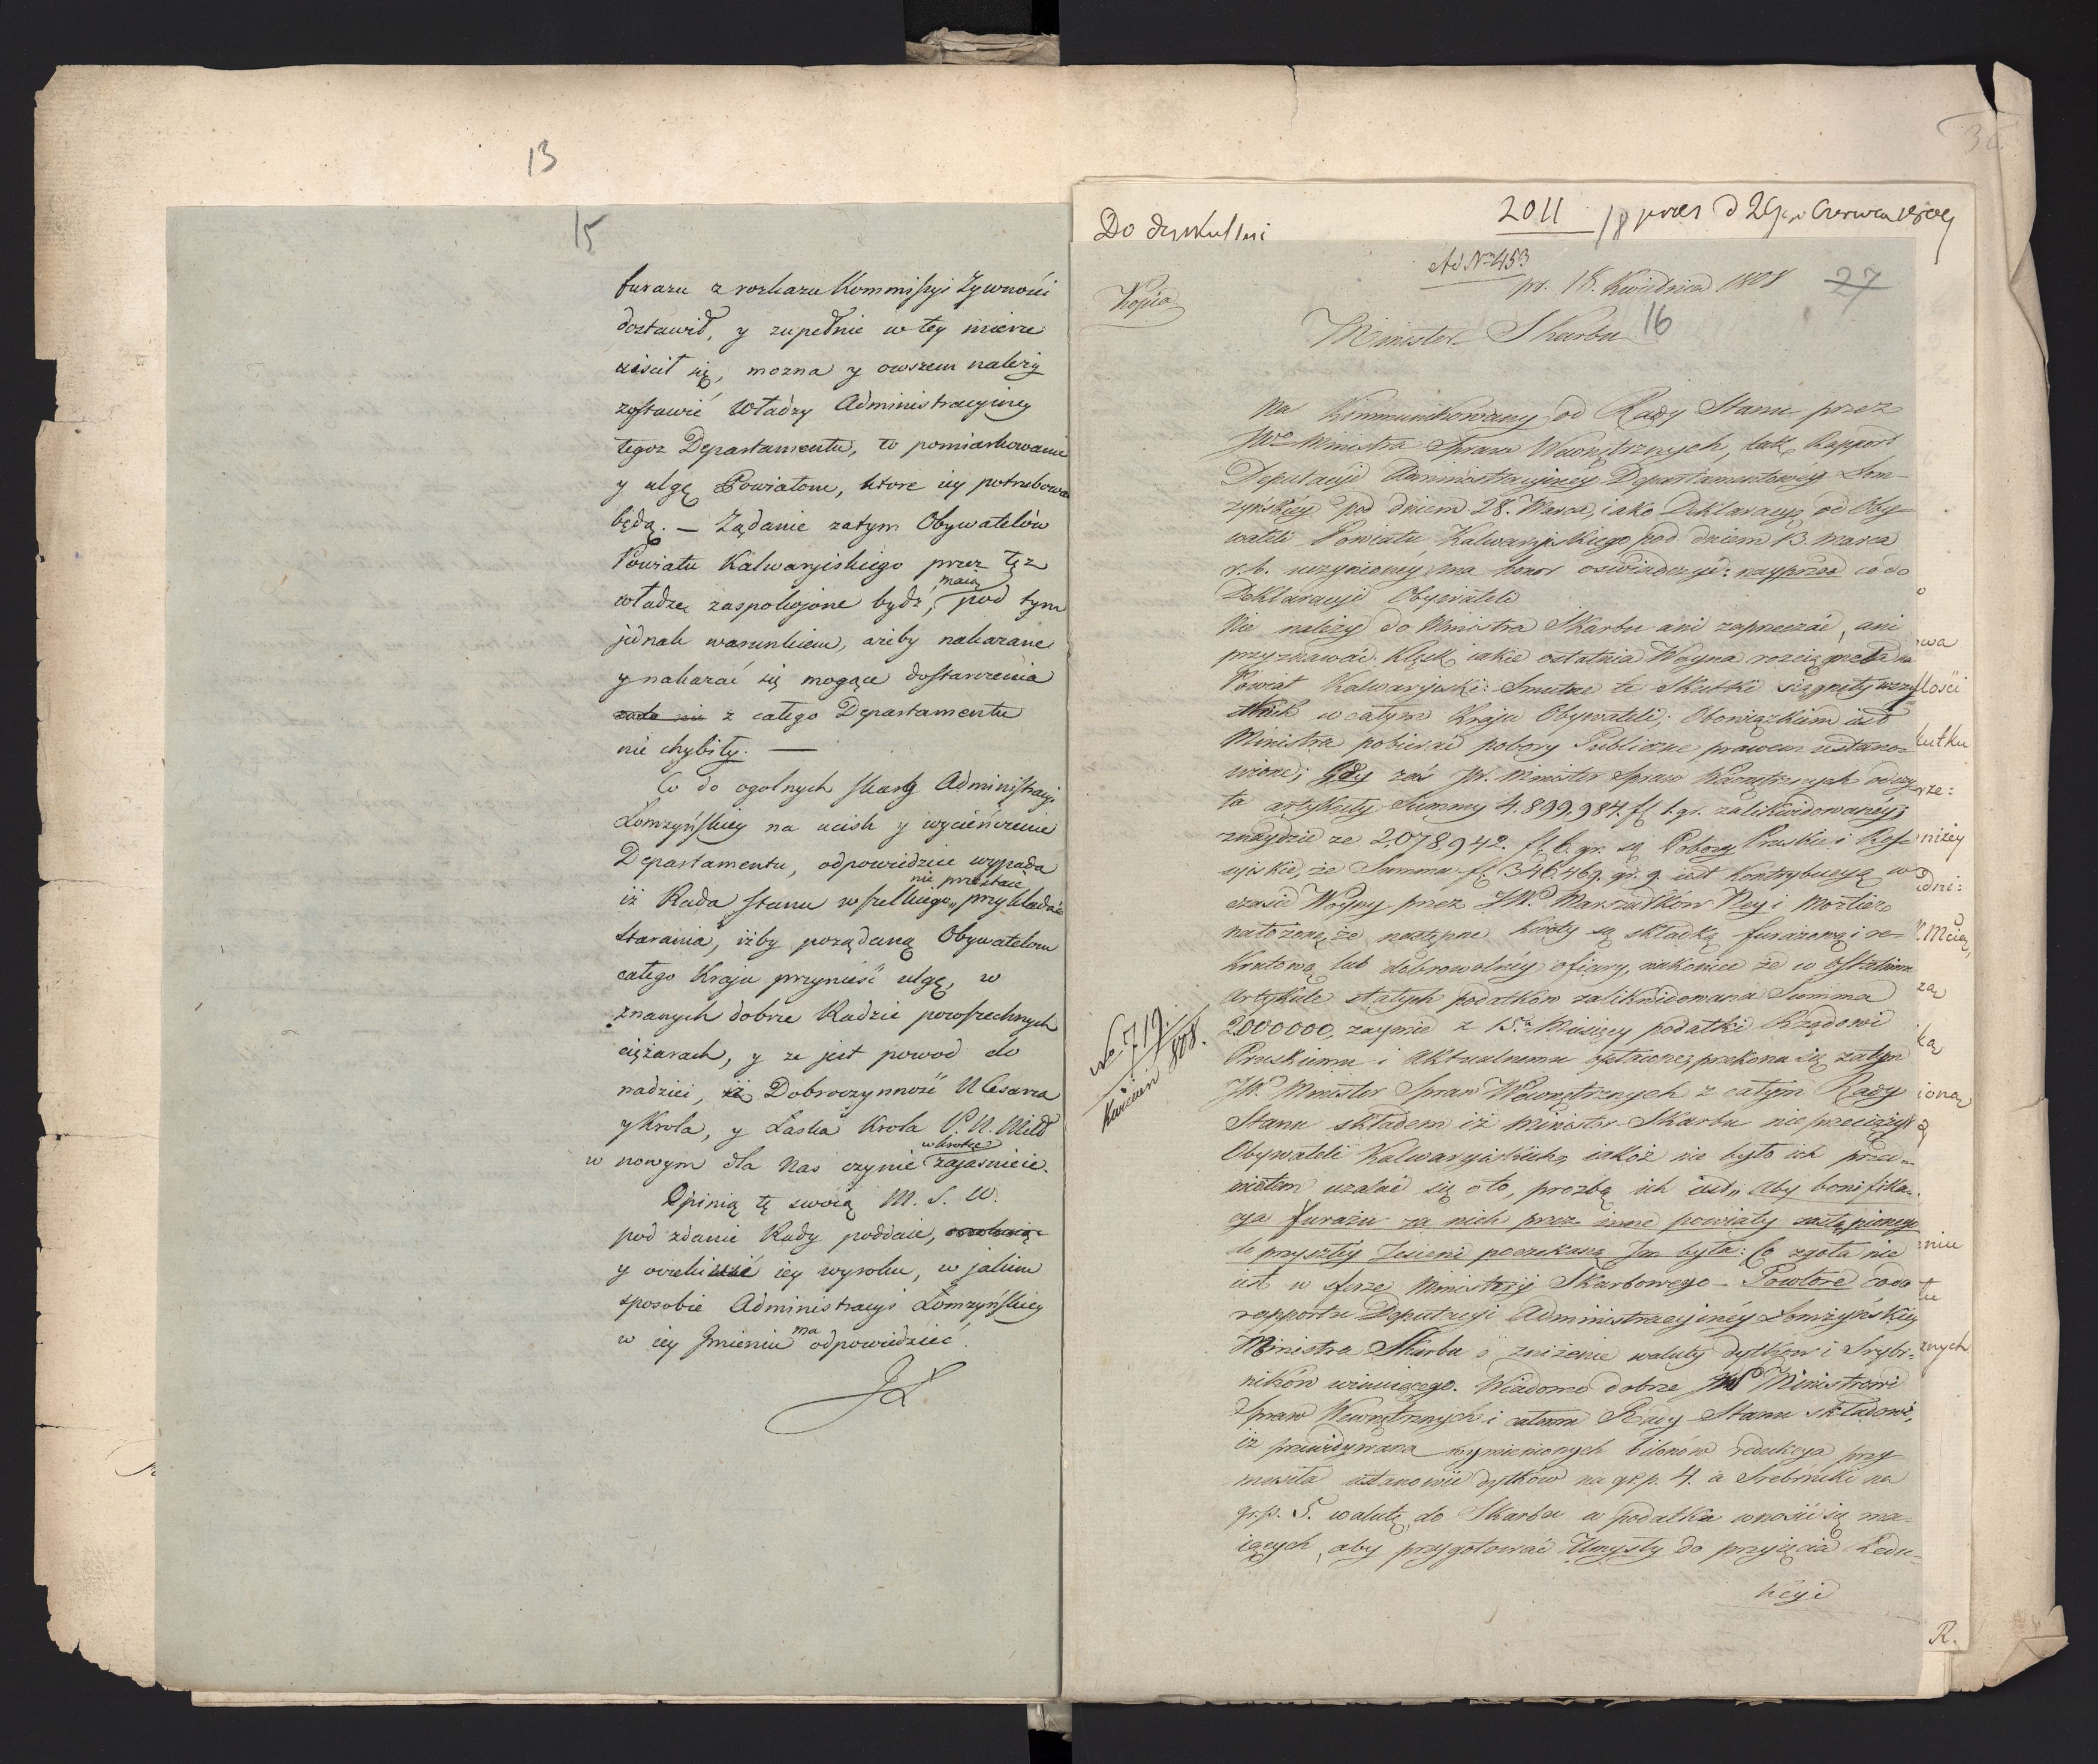 13
15
furazu z rozkazu Kommissyi Zywności
dostawił, y zupełnie w tey mierze
uiścił się, mozna y owszem należy
zostawić Władzy Administracyiney
tegoz Departamentu, to pomiarkowanie
y ulgę Powiatom, ktore iey potrzebować
będą. — Żądanie zatym Obywatelów
Powiatu Kalwaryiskiego przez tęz
maią
władzę zaspokojone bydź, pod tym
jednak warunkiem, ażeby nakazane
y nakazać się mogące dostarczenia
z całego Departamentu
nie chybiły. —
Co do ogolnych skarg Administracyi
Łomzyńskiey na ucisk y wycieńczenie
Departamentu, odpowiedziec wypada
nie przestaie
iż Rada Stanu wszelkiego przykładać
starania, iżby pożądaną Obywatelom
całego Kraju przynieść ulgę, w
znanych dobrze Radzie powszechnych
ciężarach, y ze jest powod do
nadziei, iż Dobroczynność N Cesarza
y Krola, y Łaska Krola P. N. Miłł
wkrotce
w nowym dla Nas czynie zajasnieie.
Opinią tę swoią M. S. W.
pod zdanie Rady poddaie,
y oczekiwać iey wyroku, w jakim
sposobie Administracyi Łomzyńskiey
ma
w iey Jmieniu odpowiedzieć.
JŁ
36.
Do dyskussyi
2011 / 8 prez d 29 Czerwca 1808
Ad Nro 453
pr. 18. Kwietnia 1808
27
Kopia
16
Minister Skarbu
Na Kommunikowany od Rady Stanu przez
JWo Ministra Spraw Wewnętrznych, tak Rapport
Deputacyi Administracyiney Departamentowéy Łom-
zyńskiéy pod dniem 28. Marca, iako Deklaracyą od Oby-
wateli Powiatu Kalwaryiskiego pod dniem 13. marca
r. b. uczynioney ma honor oswiadczyć: nayprzod co do
Deklaracyi Obywateli
Nie należy do Ministra Skarbu ani zaprzeczać, ani
przyznawać klęsk iakie ostatnia Woyna rozciągnęła na
Powiat Kalwaryiski: Smutne te Skutki sięgnęły wszy-
stkich w całym Kraju Obywateli; Obowiązkiem iest
Ministra pobierać pobory Publiczne prawem ustano-
wione; Gdy zaś JW. Minister Spraw Wewnętrznych odczy-
ta artykuły Summy 4.899.984. fl 1. gr. zalikwidowanéy,
znaydzie ze 2,078,942. fl. 6. gr. są Pobory Pruskie i Ros-
syiskie, że Summa fl. 346.469. gr. 9. iest Kontrybucyą w
czasie Woyny przez JW. Marszałków Ney i Mortier
nałożoną, że następne kwoty są składką furażową i re-
krutową lub dobrowolnéy ofiary, nakoniec że w ostatnim
Artykule stałych podatków zalikwidowana Summa
2000000, zaymie z 15. Miesięcy podatki Rządowi
Pruskiemu i aktualnemu opłacone, przekona się zatym
JW. Minister Spraw Wewnętrznych z całym Rady
Stanu składem iż Minister Skarbu nie przeciążył
Obywateli Kalwaryiskich, iakoż nie było ich przed-
miotem użalać się o to, prozbą ich iest, Aby bonifika-
cya furażu za nich przez inne powiaty zastąpionego
do przyszłéy Jesieni poczekaną Jm była: Co zgoła nie
iest w sferze Ministeryi Skarbowego - Powtóre co do
rapportu Deputacyi Administracyinéy Łomżyńskiey
Ministra Skarbu o zniżenie waluty dytków i Srybr-
ników winuiącego. Wiadomo dobrze JW Ministrowi
Spraw Wewnętrznych i całemu Rady Stanu składowi,
iż przewidywana wymienionych bilonów redukcya przy
musiła ustanowić dytków na gr. p. 4. a Srebrniki na
gr. p. 5. walutę, do Skarbu w podatku wnosić się ma-
iących, aby przygotować Umysły do przyięcia Redu-
kcyi
No 719
Kwiecień 808.
kutku
niżey
znych
R.